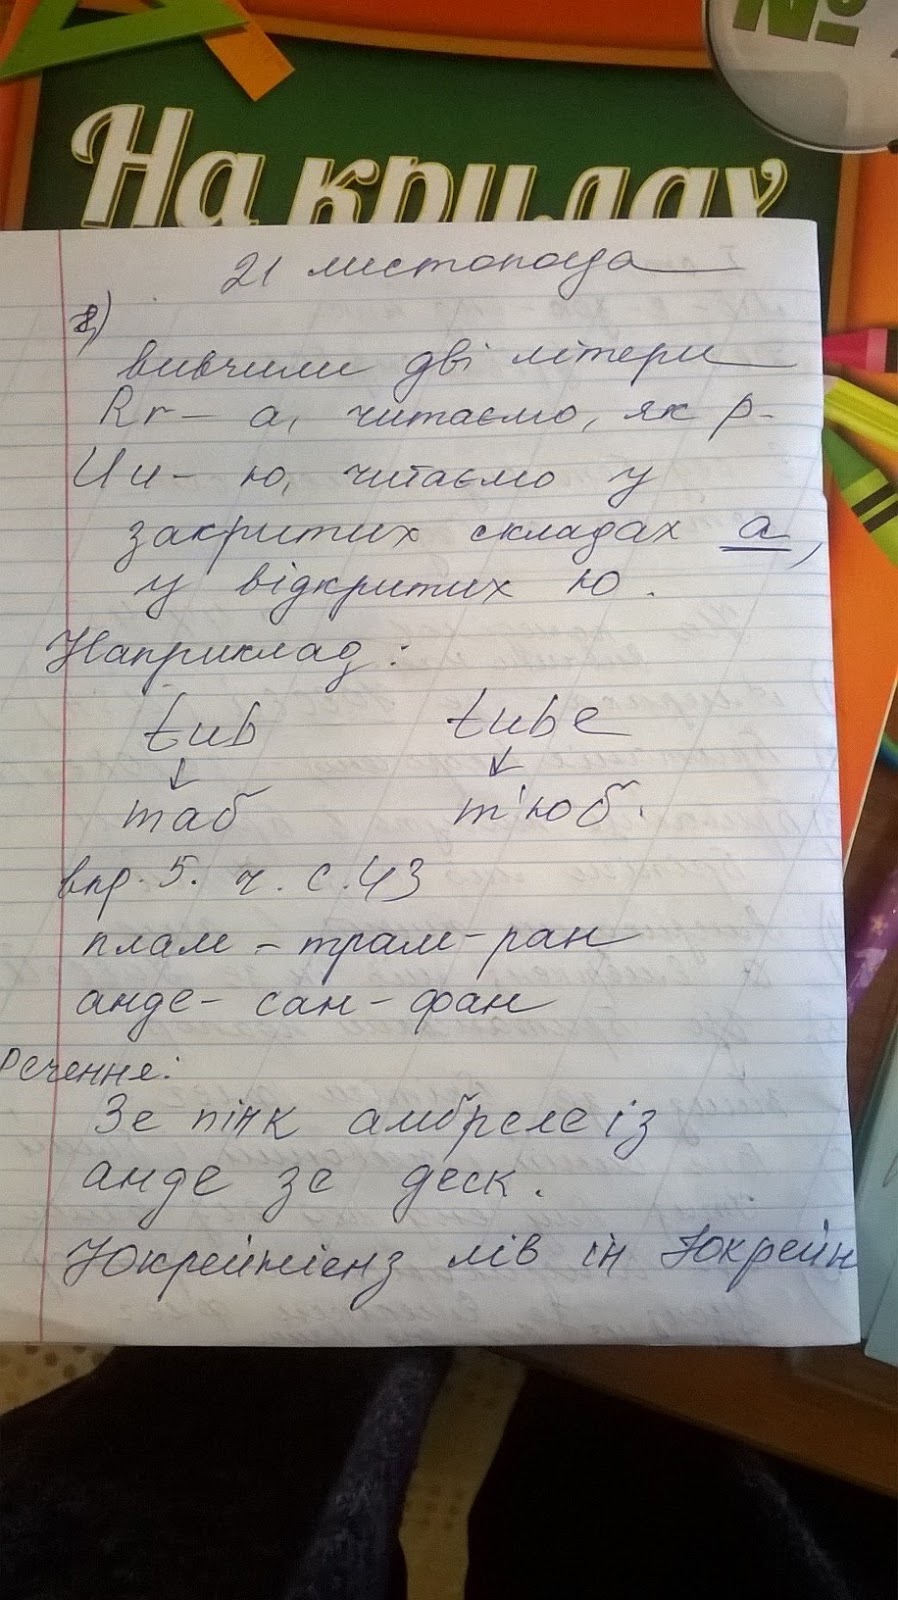 №
На крилах
21 листопада
вивчили дві літери
Rr – а, читаємо, як р-
Uu – ю, читаємо у
закритих складах а,
у відкритих ю.
Наприклад:
tub tube
↓ ↓
таб т'юб.
впр. 5. ч. с. 43
плам – трам – ран
анде – сан – фан
Речення:
Зе пінк амбреле із
анде зе деск.
Юкрейніенз лів ін Юкрейн